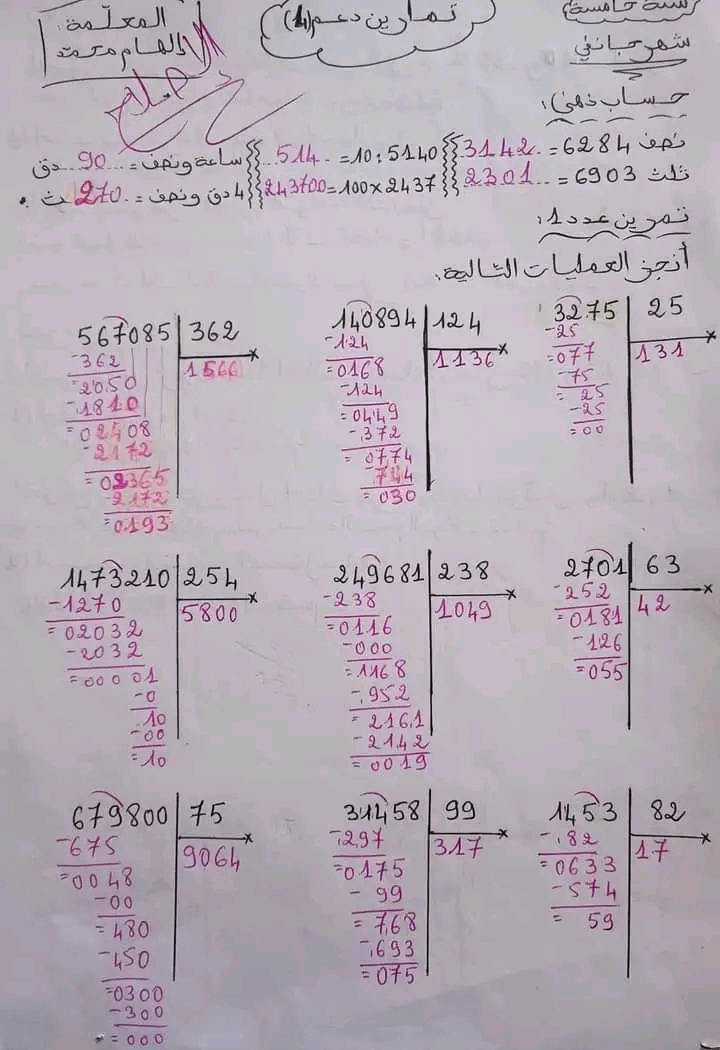 سنة خامسة
شهر جانفي
تمارين دعم (4)
المعلمة:
إلهام محمد
الإصلاح
حساب ذهني:
نصف 6284 = 3142 } 5140 : 10 = 514 } ساعة ونصف = 90 دق
ثلث 6903 = 2301 } 2437 × 100 = 243700 } 4 دق ونصف = 270 ث.
تمرين عدد 1:
أنجز العمليات التالية:
3275 | 25
-25 | 131
=077
-75
= 25
-25
=00
140894 | 124
-124 | 1136
=0168
-124
=0449
-372
=0774
-744
=030
567085 | 362
-362 | 1566
=2050
-1810
=02408
-2172
=02365
-2172
=0193
2701 | 63
-252 | 42
=0181
-126
=055
249681 | 238
-238 | 1049
=0116
-000
=1168
-952
=2161
-2142
=0019
1473210 | 254
-1270 | 5800
=02032
-2032
=00001
-0
10
-00
=10
1453 | 82
-82 | 17
=0633
-574
= 59
31458 | 99
-297 | 317
=0175
- 99
=768
-693
=075
679800 | 75
-675 | 9064
=0048
-00
=480
-450
=0300
-300
=000